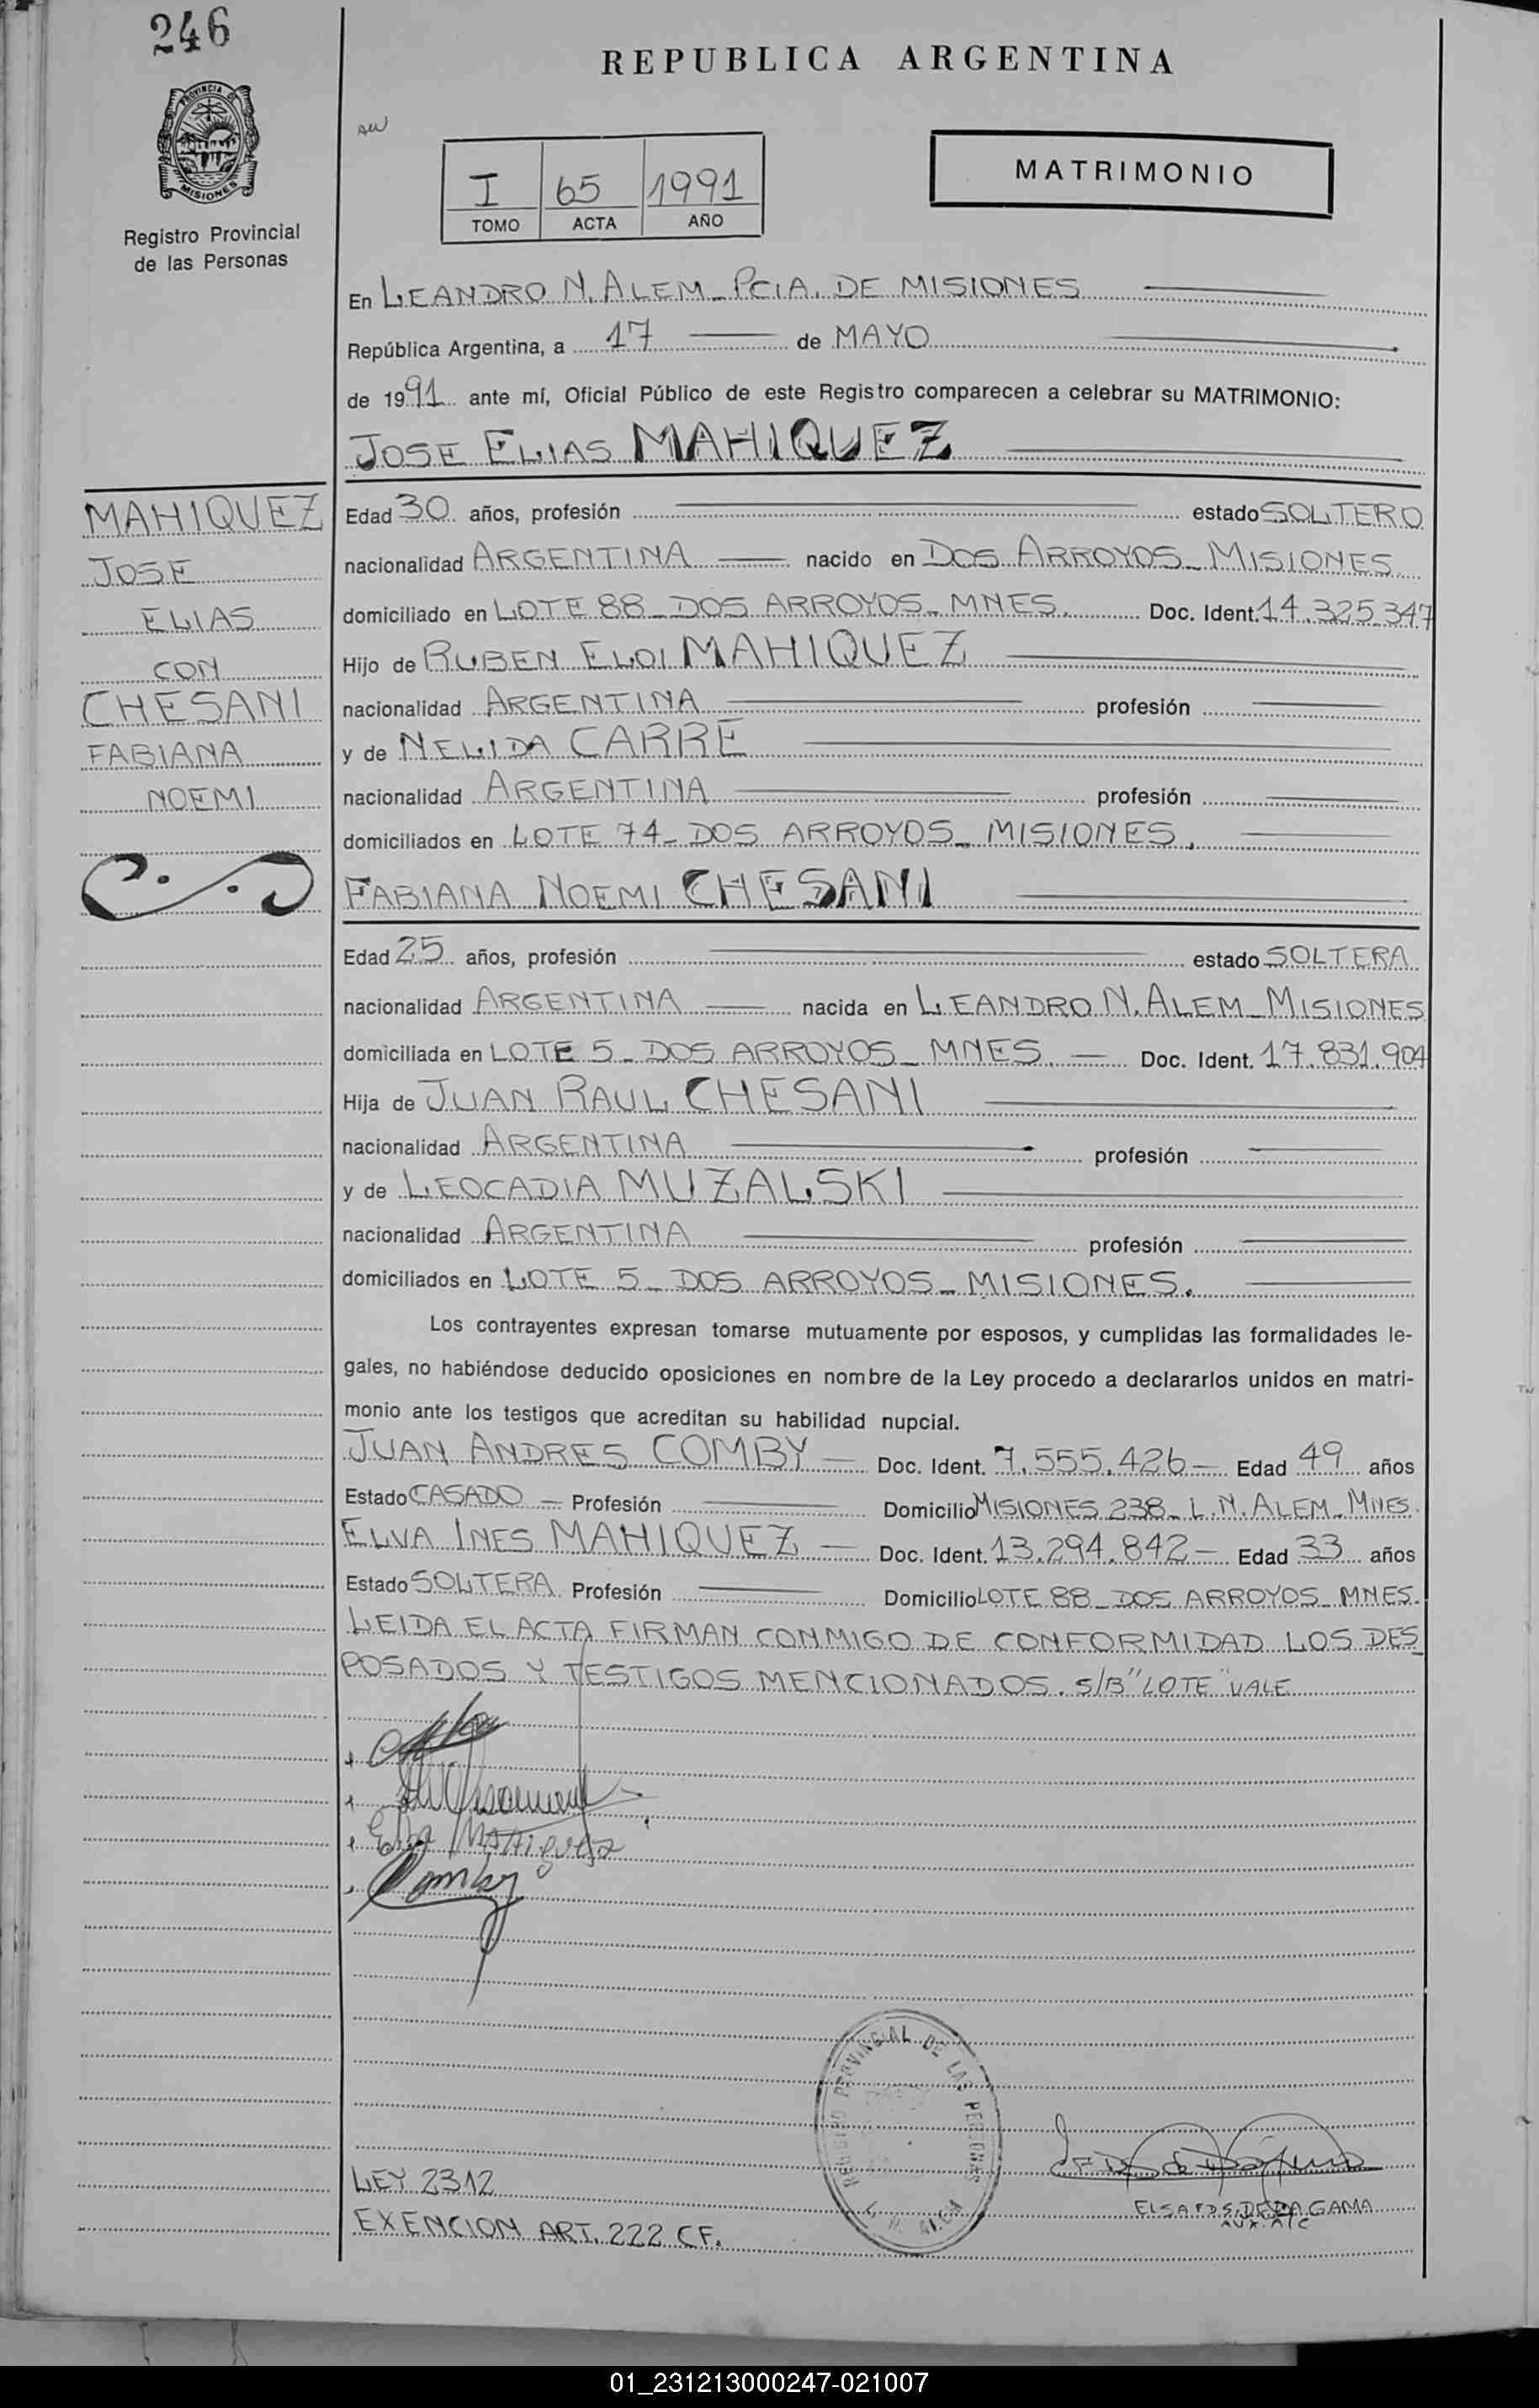 246
REPUBLICA ARGENTINA
PROVINCIA DE
MISIONES
Registro Provincial
de las Personas
I 65 1991
TOMO ACTA AÑO
MATRIMONIO
En LEANDRO N. ALEM - PCIA. DE MISIONES
República Argentina, a 17 de MAYO
de 1991 ante mí, Oficial Público de este Registro comparecen a celebrar su MATRIMONIO:
JOSE ELIAS MAHIQUEZ
MAHIQUEZ
JOSE
ELIAS
CON
CHESANI
FABIANA
NOEMI
Edad 30 años, profesión estado SOLTERO
nacionalidad ARGENTINA nacido en DOS ARROYOS - MISIONES
domiciliado en LOTE 88 - DOS ARROYOS - MNES. Doc. Ident. 14.325.347
Hijo de RUBEN ELOI MAHIQUEZ
nacionalidad ARGENTINA profesión
y de NELIDA CARRE
nacionalidad ARGENTINA profesión
domiciliados en LOTE 74 - DOS ARROYOS - MISIONES.
FABIANA NOEMI CHESANI
Edad 25 años, profesión estado SOLTERA
nacionalidad ARGENTINA nacida en LEANDRO N. ALEM - MISIONES
domiciliada en LOTE 5 - DOS ARROYOS - MNES. Doc. Ident. 17.831.904
Hija de JUAN RAUL CHESANI
nacionalidad ARGENTINA profesión
y de LEOCADIA MUZALSKI
nacionalidad ARGENTINA profesión
domiciliados en LOTE 5 - DOS ARROYOS - MISIONES.
Los contrayentes expresan tomarse mutuamente por esposos, y cumplidas las formalidades le-
gales, no habiéndose deducido oposiciones en nombre de la Ley procedo a declararlos unidos en matri-
monio ante los testigos que acreditan su habilidad nupcial.
JUAN ANDRES COMBY - Doc. Ident. 7.555.426 - Edad 49 años
Estado CASADO - Profesión Domicilio MISIONES 238 - L.N. ALEM - MNES.
ELVA INES MAHIQUEZ - Doc. Ident. 13.294.842 - Edad 33 años
Estado SOLTERA Profesión Domicilio LOTE 88 - DOS ARROYOS - MNES.
LEIDA EL ACTA FIRMAN CONMIGO DE CONFORMIDAD LOS DES
POSADOS Y TESTIGOS MENCIONADOS. S/B "LOTE" VALE
Elva Mahiquez
Comby
REGISTRO PROVINCIAL DE LAS PERSONAS
LEY 2312
EXENCION ART. 222 CF.
ELSA F DS. DE DA GAMA
AUX. A/C
01_231213000247-021007